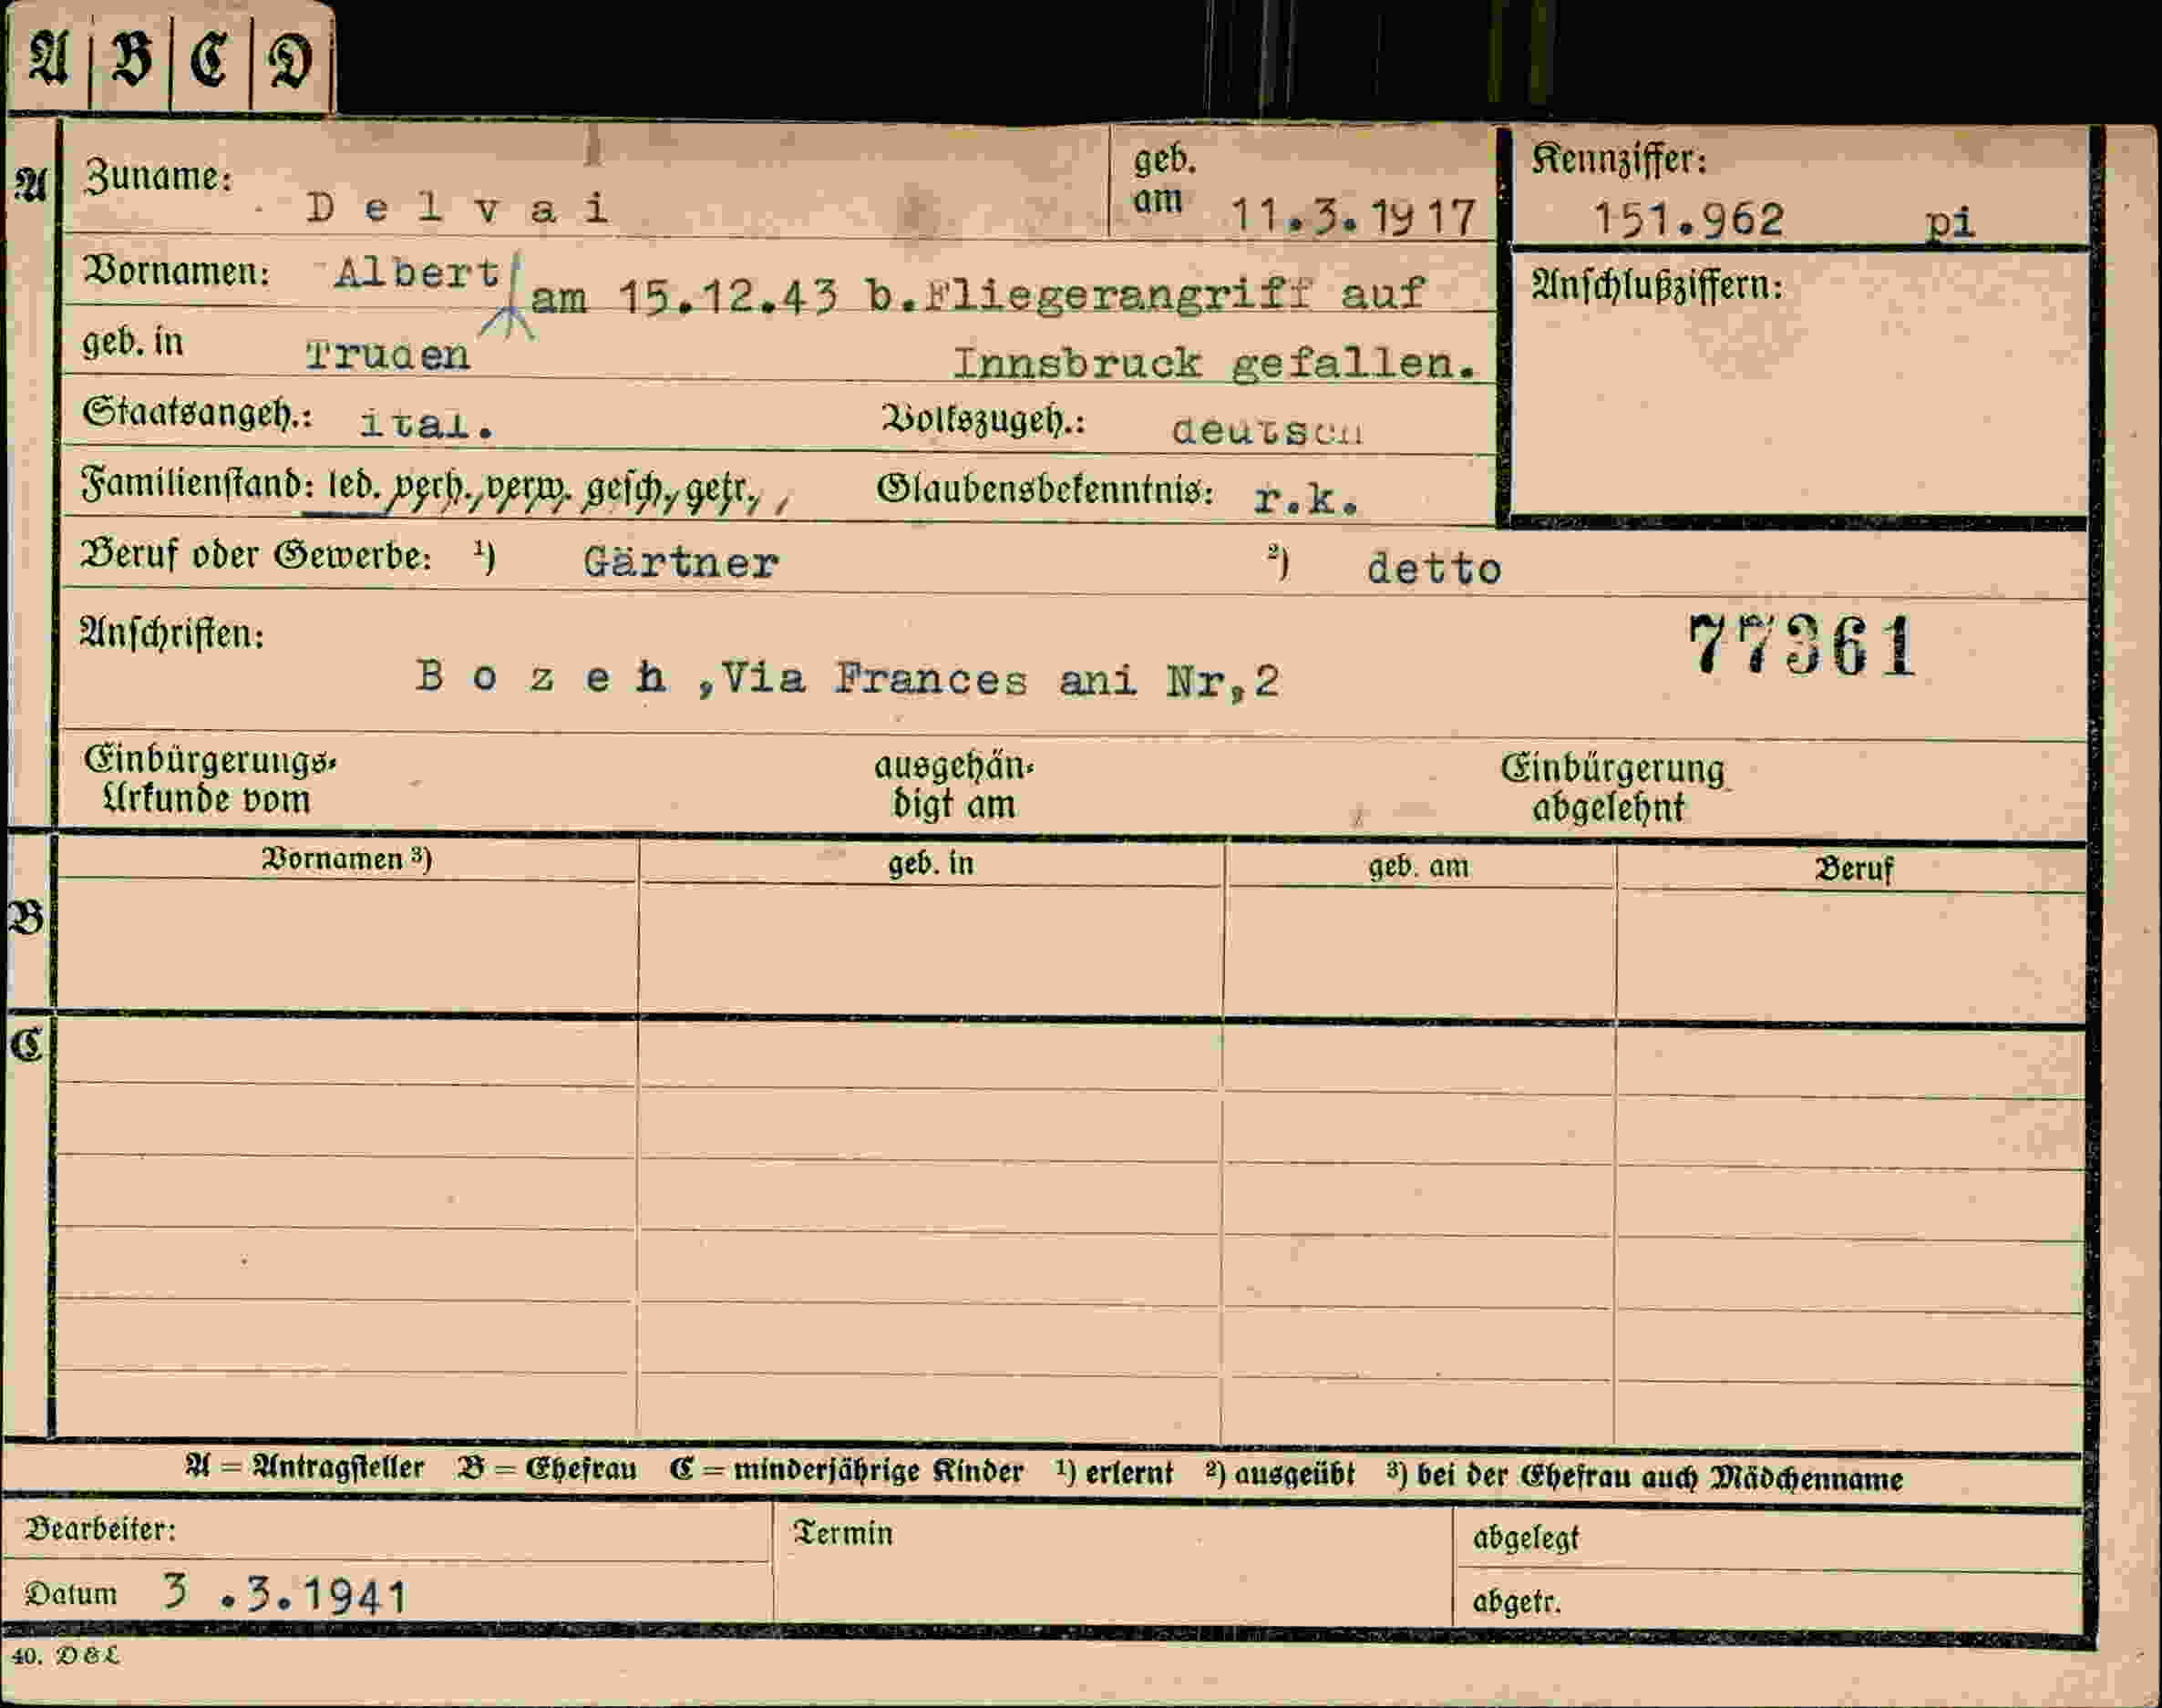 A B C D
A Zuname: D e l v a i geb. am 11.3.1917 Kennziffer: 151.962 pi
Vornamen: Albert am 15.12.43 b.Fliegerangriff auf Anschlußziffern:
geb. in Truden Innsbruck gefallen.
Staatsangeh.: ital. Volkszugeh.: deutsch
Familienstand: led. verh., verw. gesch., getr., Glaubensbekenntnis: r.k.
Beruf oder Gewerbe: ¹) Gärtner ²) detto
Anschriften: 77361
B o z e n ,Via Frances ani Nr,2
Einbürgerungs- ausgehän- Einbürgerung
Urkunde vom digt am abgelehnt
Vornamen ³) geb. in geb. am Beruf
B
C
A = Antragsteller B = Ehefrau C = minderjährige Kinder ¹) erlernt ²) ausgeübt ³) bei der Ehefrau auch Mädchenname
Bearbeiter: Termin abgelegt
Datum 3 .3.1941 abgetr.
40. D&L